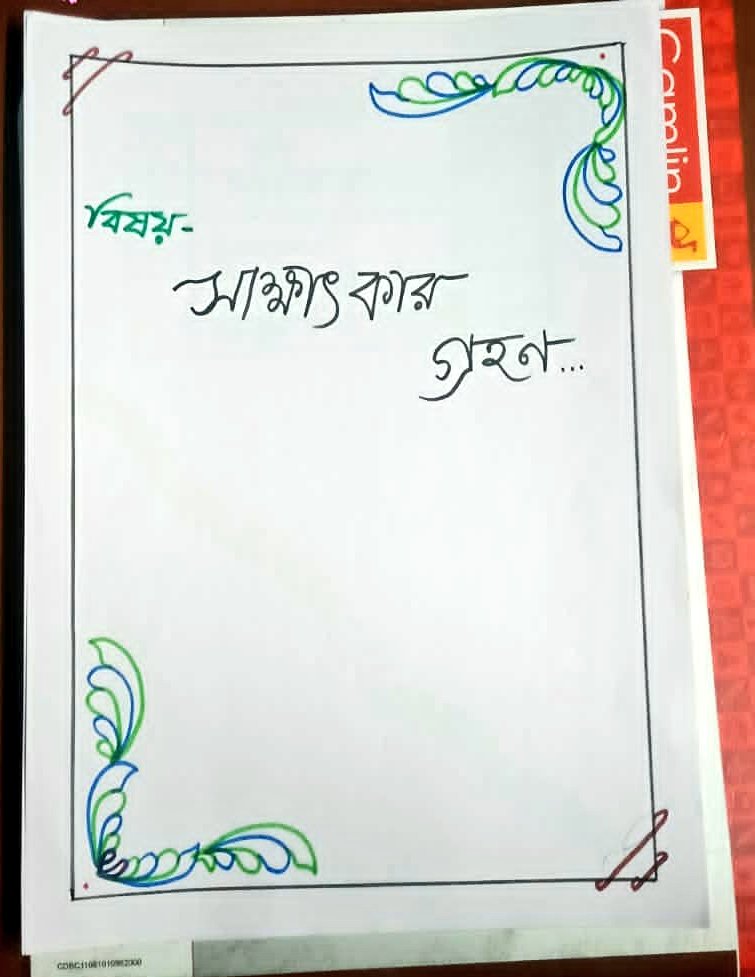 বিষয়-
সাক্ষাৎকার
গ্রহণ...
Camlin